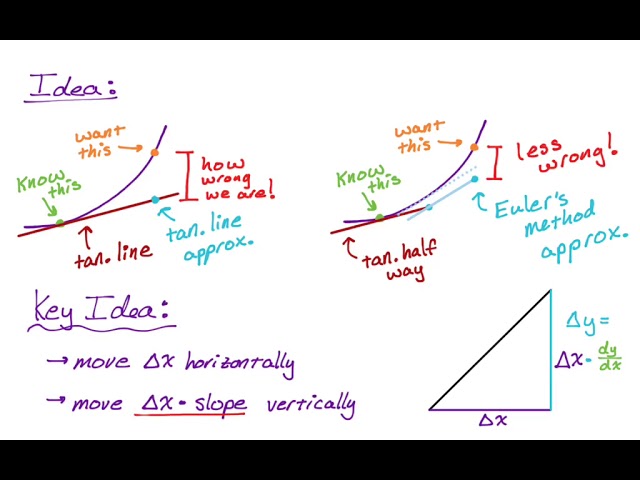 Idea:
want
this
know
this
how
wrong
we are!
tan. line
tan. line
approx.
want
this
know
this
less
wrong!
tan. half
way
Euler's
method
approx.
Key Idea:
→ move Δx horizontally
→ move Δx · slope vertically
Δy =
Δx · dy/dx
Δx